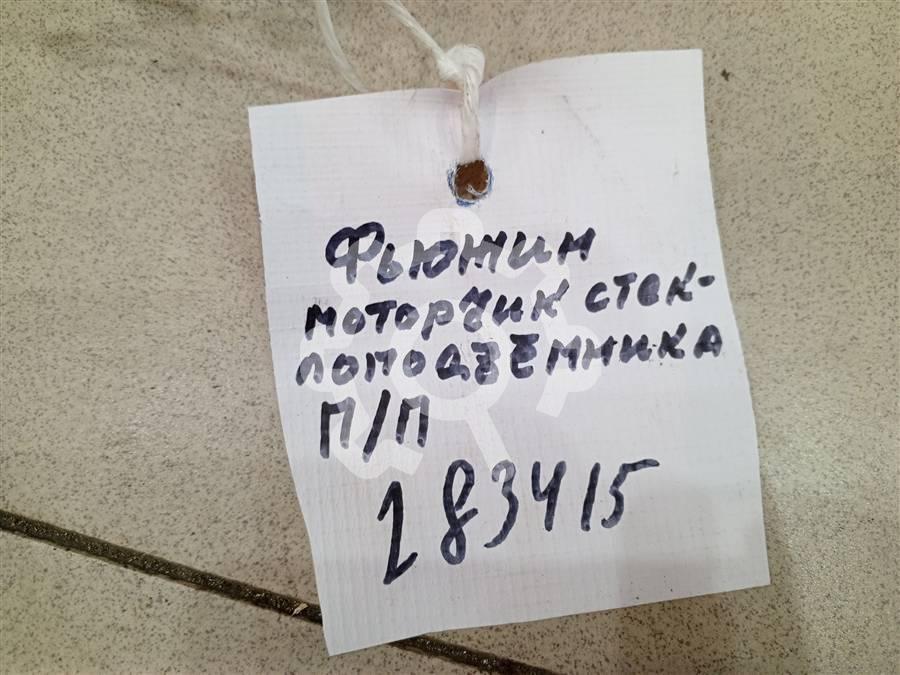 Фьюжин
моторчик стек-
лоподъёмника
П/П
283415